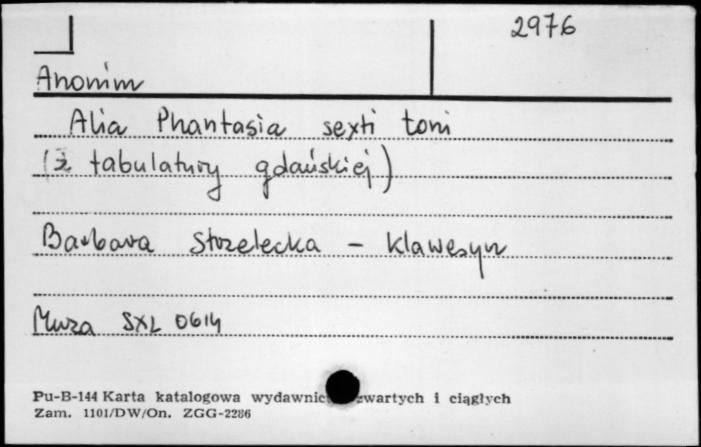 2976
Anonim
Alia Phantasia sexti toni
(z tabulatury gdańskiej)
Barbara Strzelecka - klawesyn
Muza SXL 0614
Pu-B-144 Karta katalogowa wydawnic wartych i ciągłych
Zam. 1101/DW/On. ZGG-2286